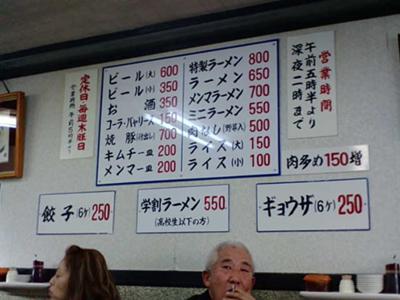 定休日・毎週木曜日
ビール(大) 600
ビール(小) 350
お酒 350
コーラ・バヤリース 150
焼豚 700
キムチ一皿 200
メンマ一皿 200
特製ラーメン 800
ラーメン 650
メンマラーメン 700
ミニラーメン 550
肉なし(野菜入) 500
ライス(大) 150
ライス(小) 100
営業時間
午前五時半より
深夜二時まで
肉多め150増
餃子(6ケ)250
学割ラーメン550
(高校生以下の方)
ギョウザ(6ケ)250